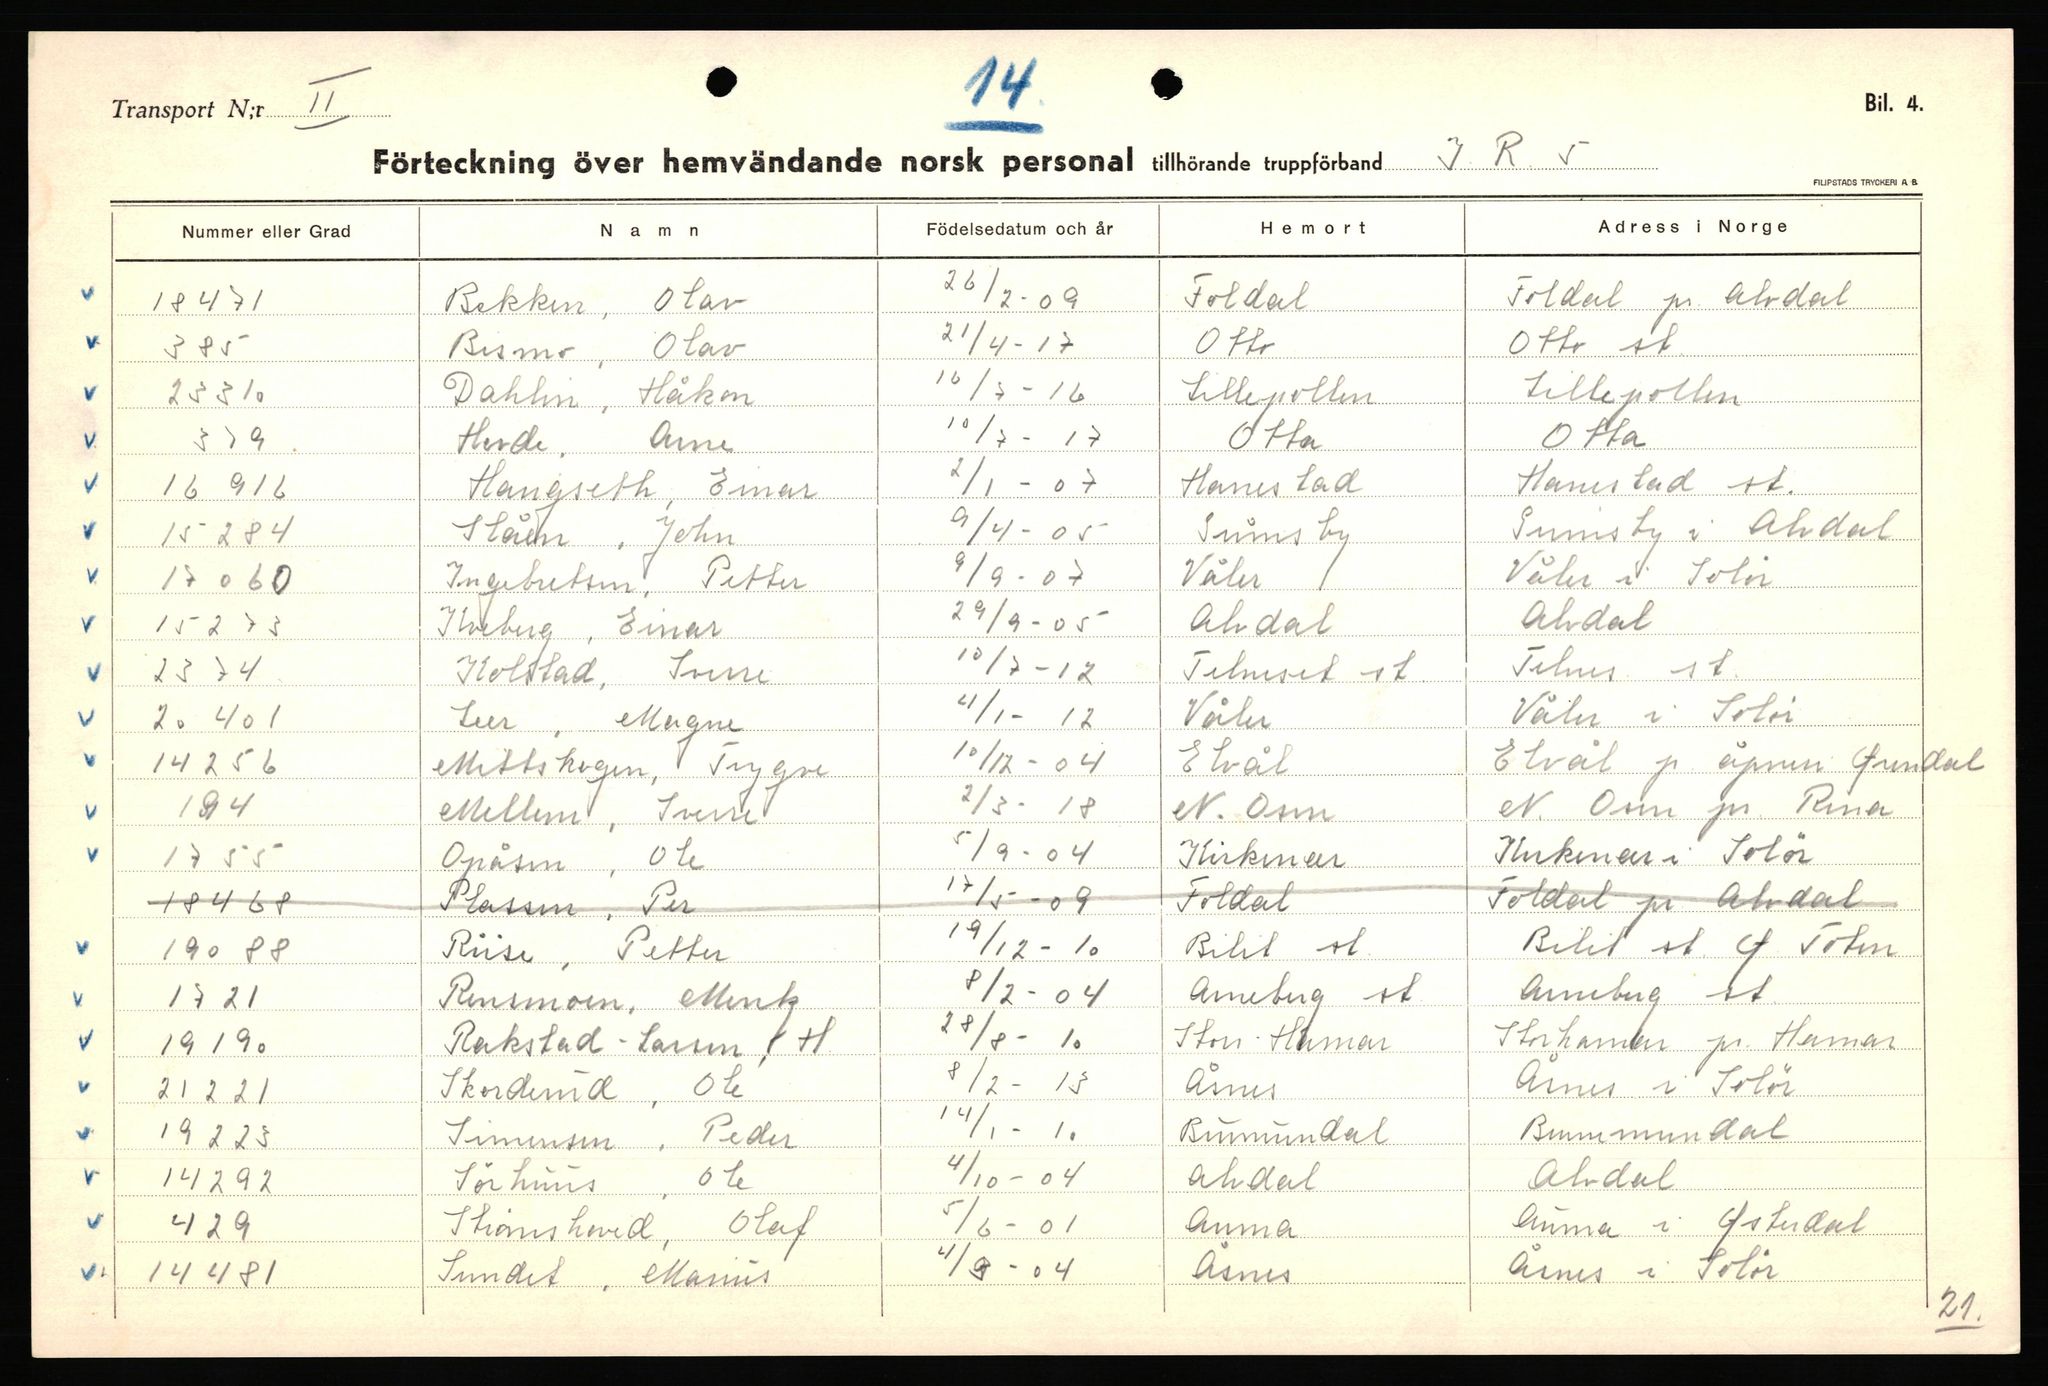 14.
Transport N;r II
Bil. 4.
Förteckning över hemvändande norsk personal tillhörande truppförband J. R. 5
FILIPSTADS TRYCKERI A. B.
Nummer eller Grad Namn Födelsedatum och år Hemort Adress i Norge
v 18471 Bekken, Olav 26/2-09 Foldal Foldal pr. Alvdal
v 385 Bismo, Olav 21/4-17 Otto Otto st.
v 23310 Dahlin, Håkon 16/7-16 Lillepollen Lillepollen
v 379 Hovde, Arne 10/7-17 Otta Otta
v 16916 Haugseth, Einar 2/1-07 Hanestad Hanestad st.
v 15284 Slåen, John 9/4-05 i Alvdal
v 17060 Ingebretsen, Petter 9/9-07 Våler Våler i Solör
v 15273 Kveberg, Einar 29/9-05 Alvdal Alvdal
v 2374 Kolstad, Sverre 10/7-12 Telneset st. Telnes st.
v 20401 Leer, Magne 4/1-12 Våler Våler i Solör
v 14256 Mittskogen, Trygve 10/12-04 Elvål Elvål p
v 194 Mellem, Sverre 2/3-18 N. Osen N. Osen pr. Rena
v 1755 Opåsen, Ole 5/9-04 Kirkenær Kirkenær i Solör
18468 Plassen, Per 17/5-09 Foldal Foldal pr Alvdal
v 19088 Riise, Petter 19/12-10 Bilit st. Bilit st. Ø Toten
v 1721 Rensmoen, Mentz 8/2-04 Arneberg st Arneberg st.
v 19190 Rakstad-Larsen, H 28/8-10 Stor-Hamar Storhamar pr. Hamar
v 21221 Skorderud, Ole 8/2-13 Åsnes Åsnes i Solör
v 19223 Simensen, Peder 14/1-10 Bumundal Brummundal
v 14292 Sörhuus, Ole 4/10-04 Alvdal Alvdal
v 429 Strömshoved, Olaf 5/6-01 Auma Auma i Østerdal
v. 14481 Sundet, Marius 4/9-04 Åsnes Åsnes i Solör
21.